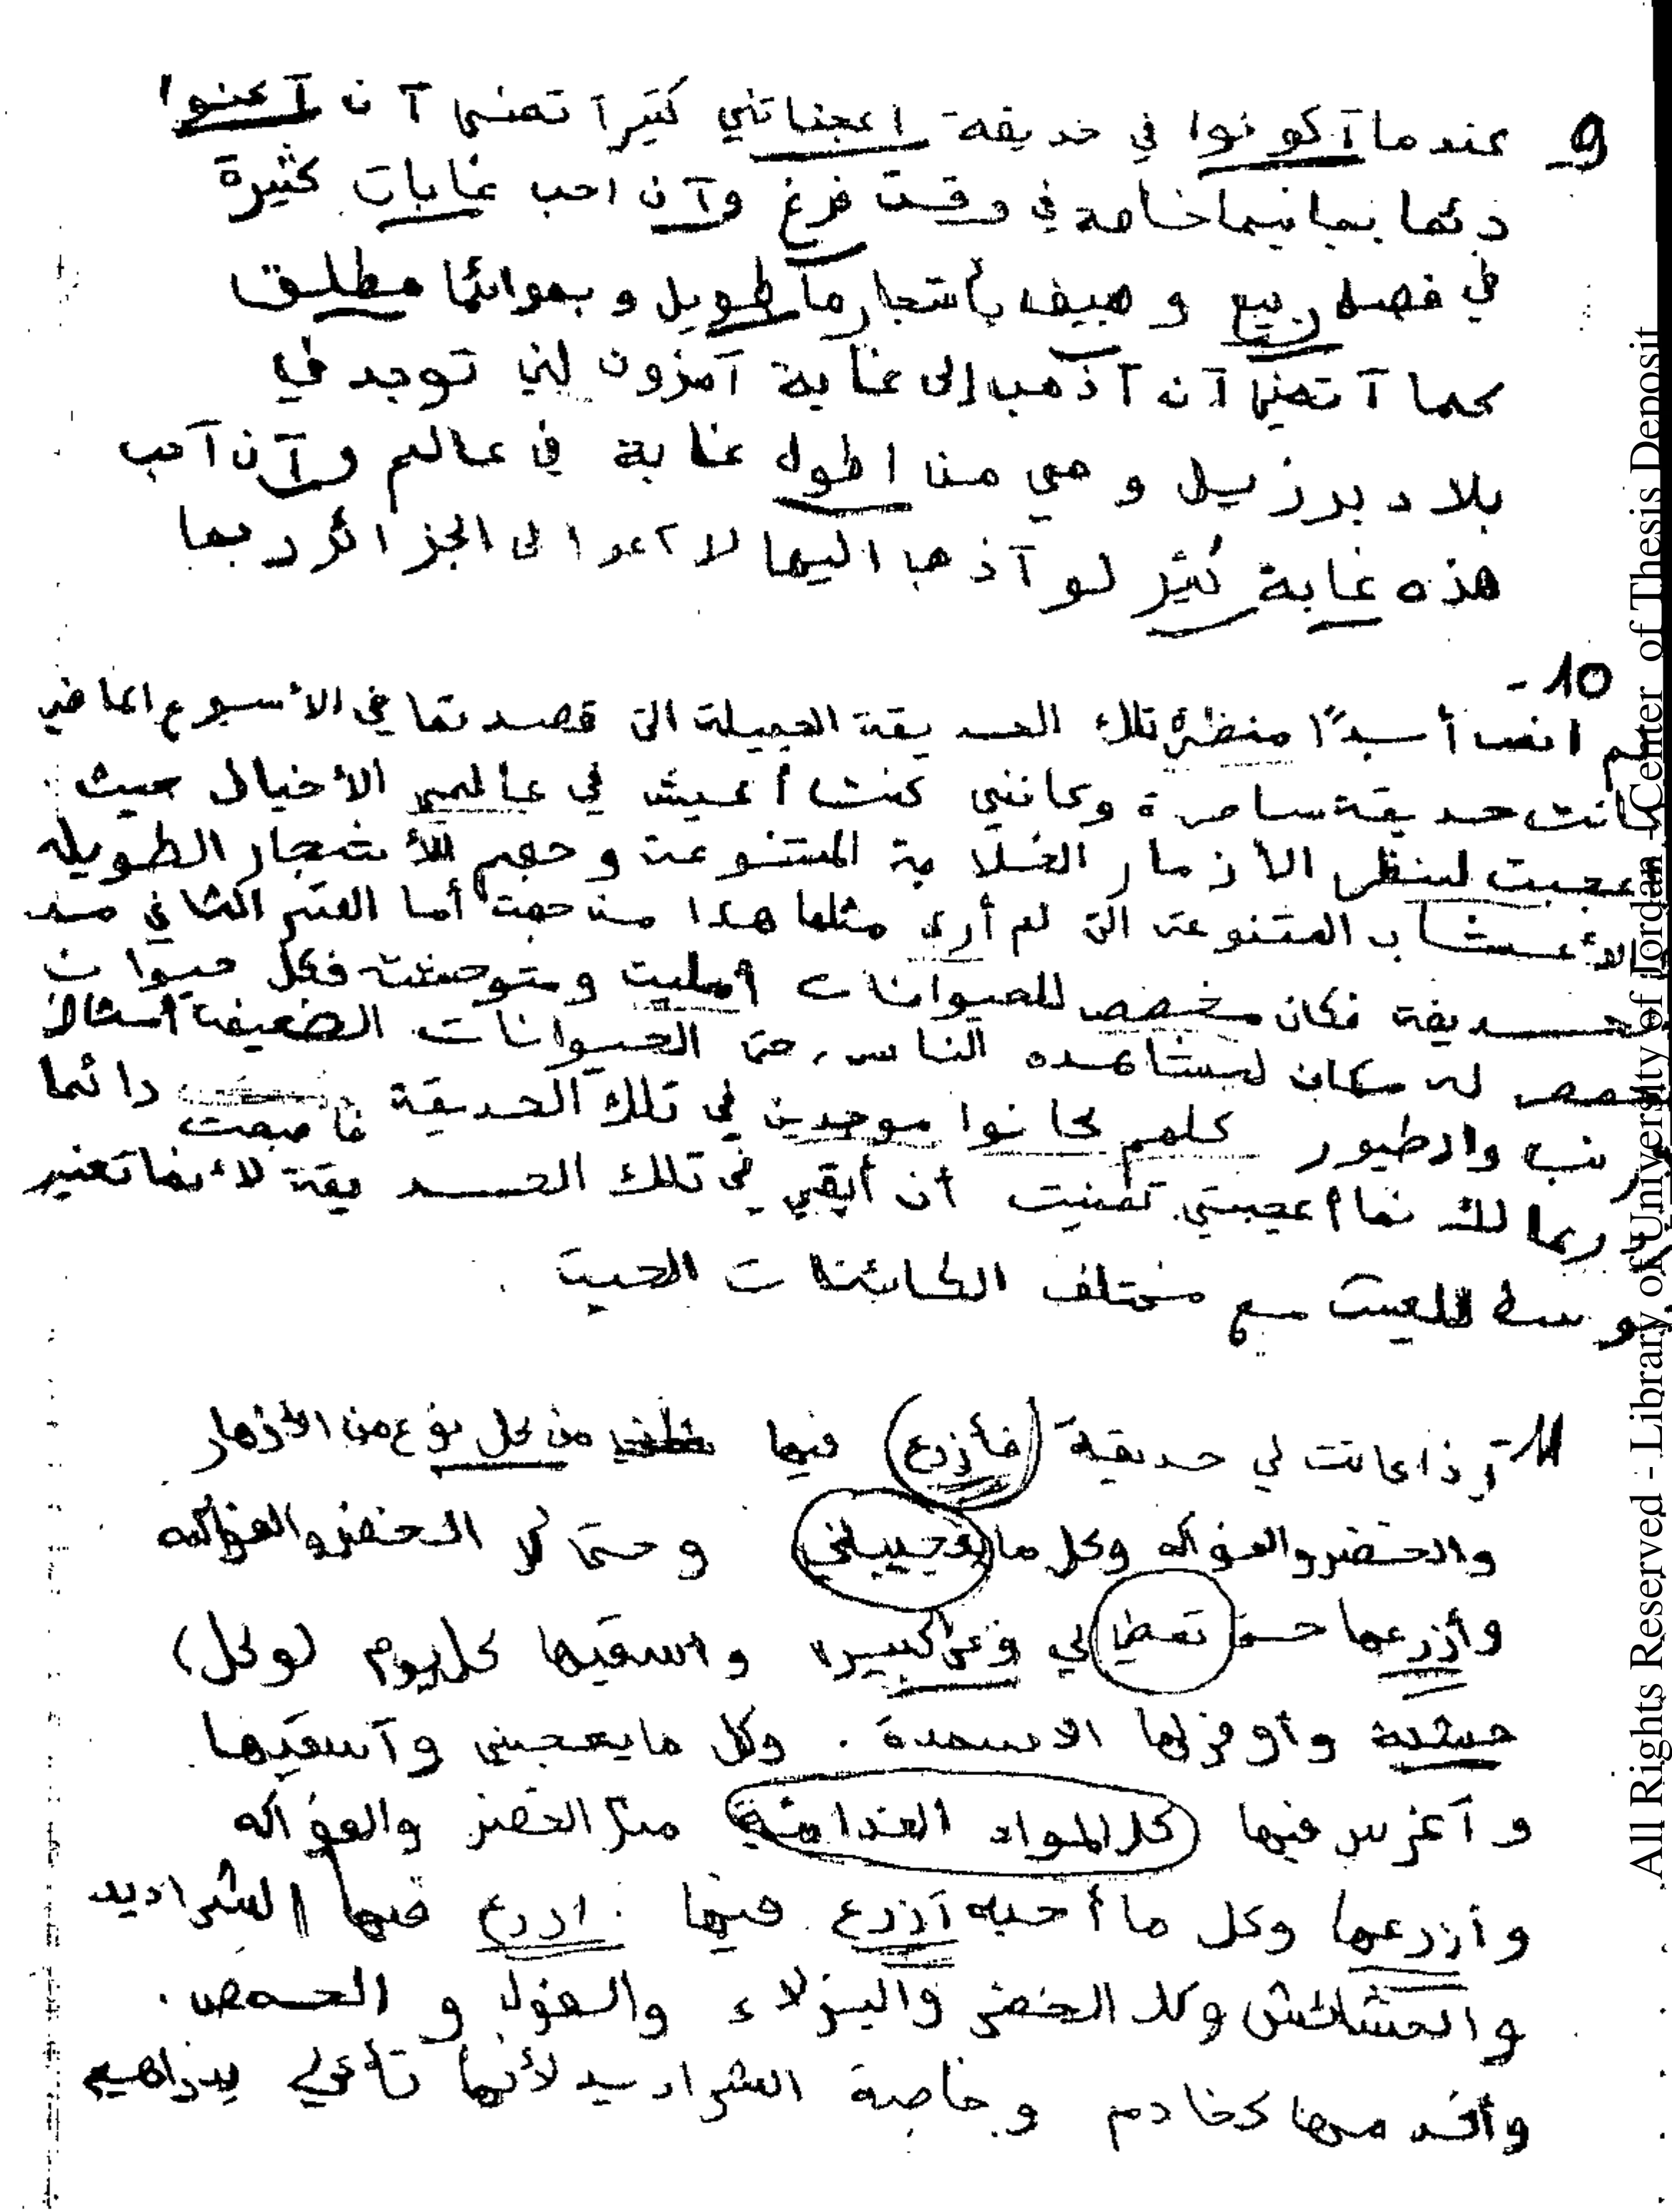 9- عندما آكونوا في خديقة اعجناتني كثيرآ تمنى آن آعنوا
دئما بجانبها خاصة في وقت فرغ وآن احب غابات كثيرة
في فصل ربيع و صيف بأشجارها طويل و بهوائها مطلق
كما آتمنى آن آذهب إلى غابة آمزون لتي توجد في
بلاد برزيل و هي من اطول غابة في عالم وآن آحب
هذه غابة كثير لو آذهب اليها لا الى الجزائر ربما
10-
لم انسا أبدًا منظرة تلك الحديقة الجميلة التي قصدتها في الأسبوع الماضي
كانت حديقة ساحرة وكانني كنت أعيش في عالم الأخيال حيث
عجبت لنظر الأزهار الخلابة المتنوعة وحجم الأشجار الطويلة
الأعشاب المتنوعة التي لم أرى مثلها هذا من جهة أما القسم الثاني من
الحديقة فكان مخصص للحيوانات أهليت ومتوحشت فكل حيوان
خصص له مكان ليشاهده الناس، حتى الحيوانات الضعيفة أمثال
رنب والطيور كلهم كانوا موجدين في تلك الحديقة فاصبحت دائما
لك نها أعجبتني تمنيت أن أبقي في تلك الحديقة لأنها تعتبر
وسط للعيت مع مختلف الكائنات الحيت.
11- إذا كانت لي حديقة (فأزرع) فيها من كل نوع من الأزهار
والخضر والفواكه وكل ما يعجبني وحتى كل الخضر والفواكه
وأزرعها حتى تعطي لي كبيرة واسقيها كل يوم (وكل)
حيثية وأوفر لها الاسمدة. وكل ما يعجبني وآسقيها
وآغرس فيها (كل المواد الغدائية) مثل الخضر والفواكه
وأزرعها وكل ما أحبه آزرع فيها. ازرع فيها الشراديد
والحشائش وكل الخضر والبزلاء والفول و الحمص.
وأخدمها كخادم وخاصة الشراديد لأنها تأتي بدراهيم
All Rights Reserved - Library of University of Jordan - Center of Thesis Deposit